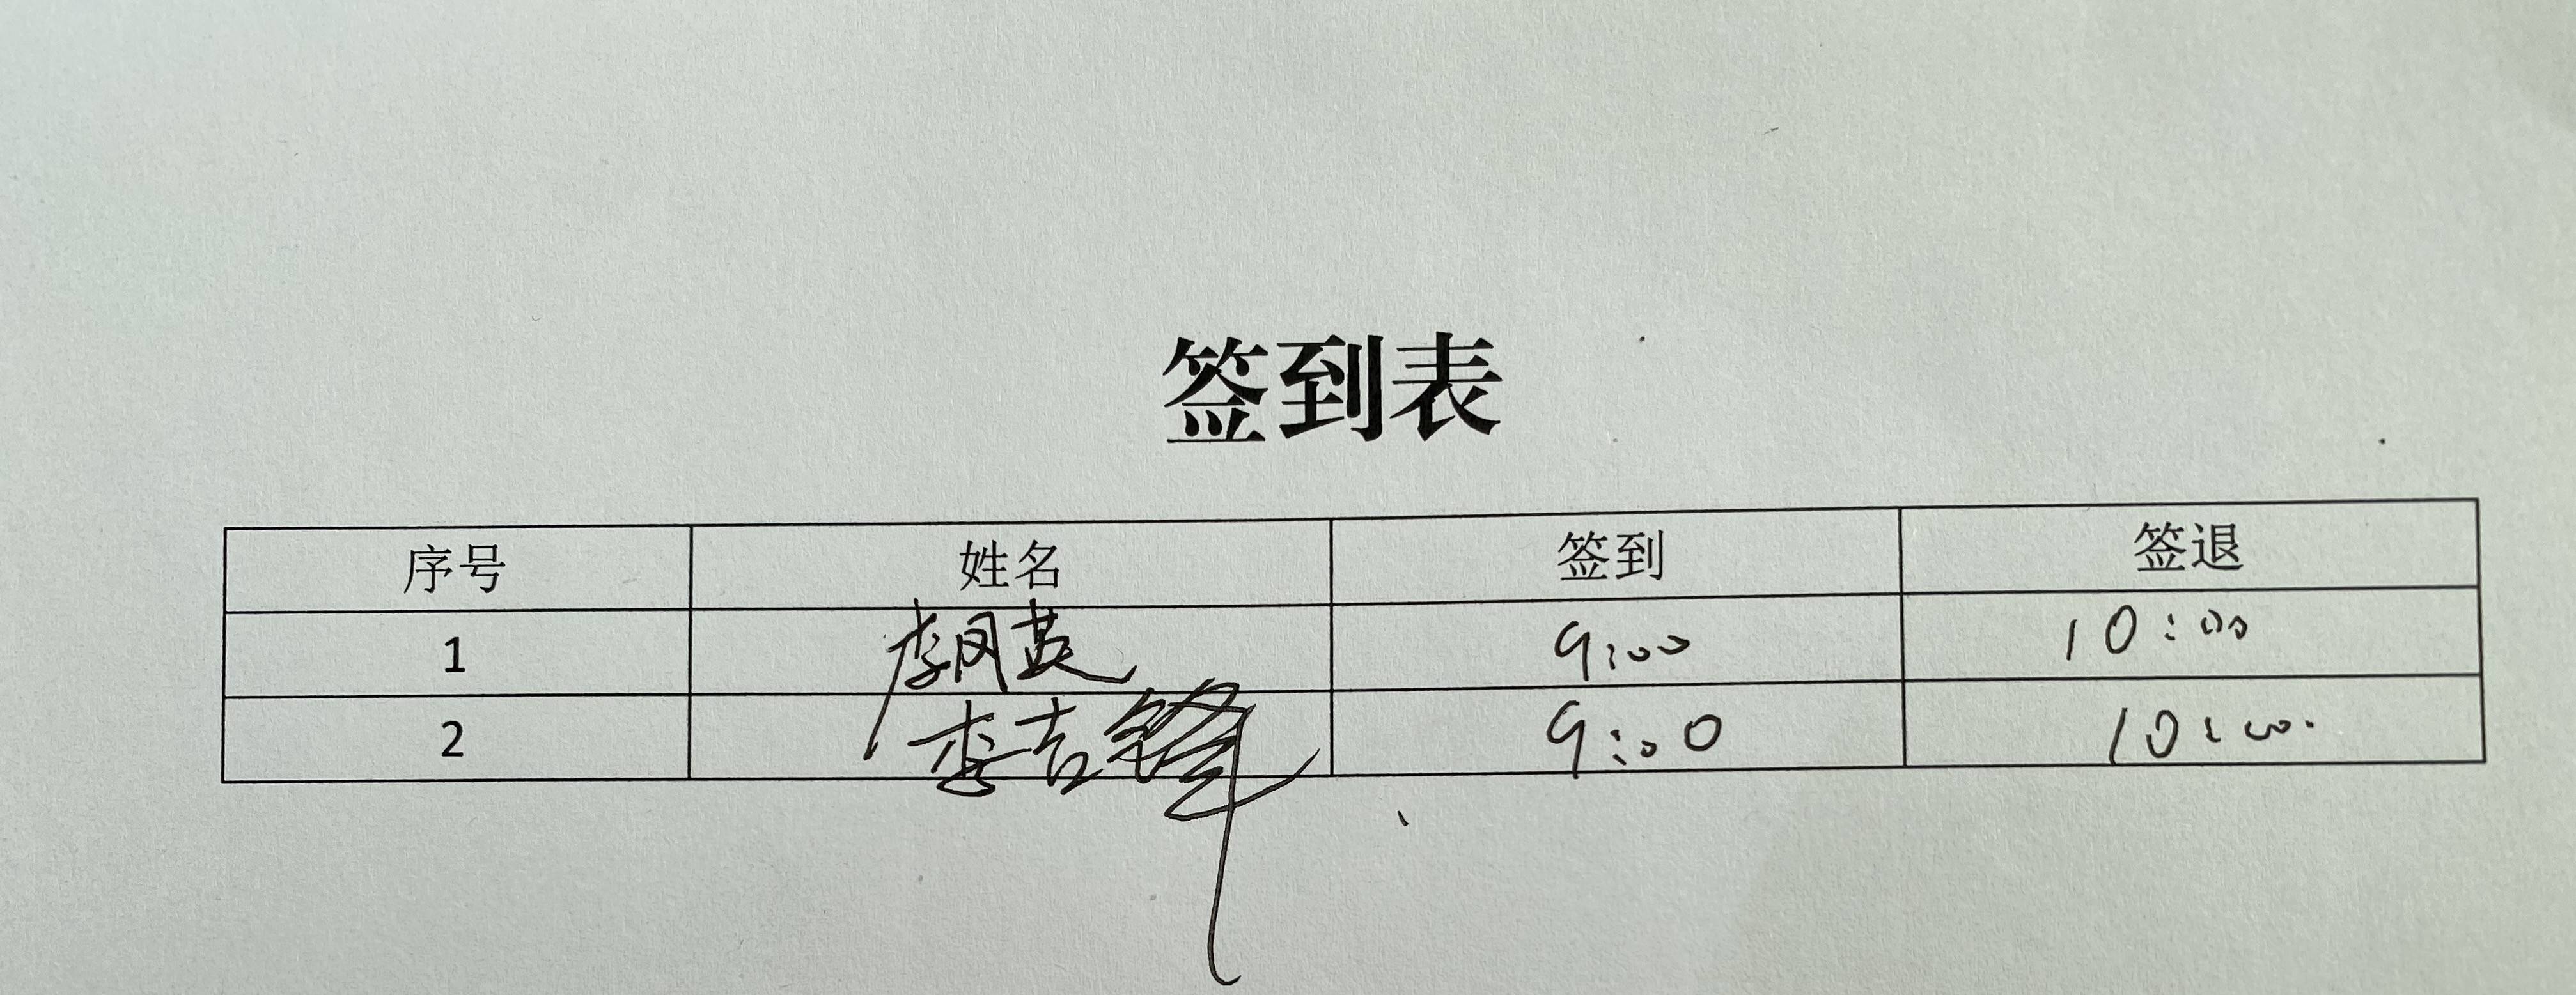 签到表
序号 姓名 签到 签退
1 李凤英 9:00 10:00
2 李吉锋 9:00 10:00